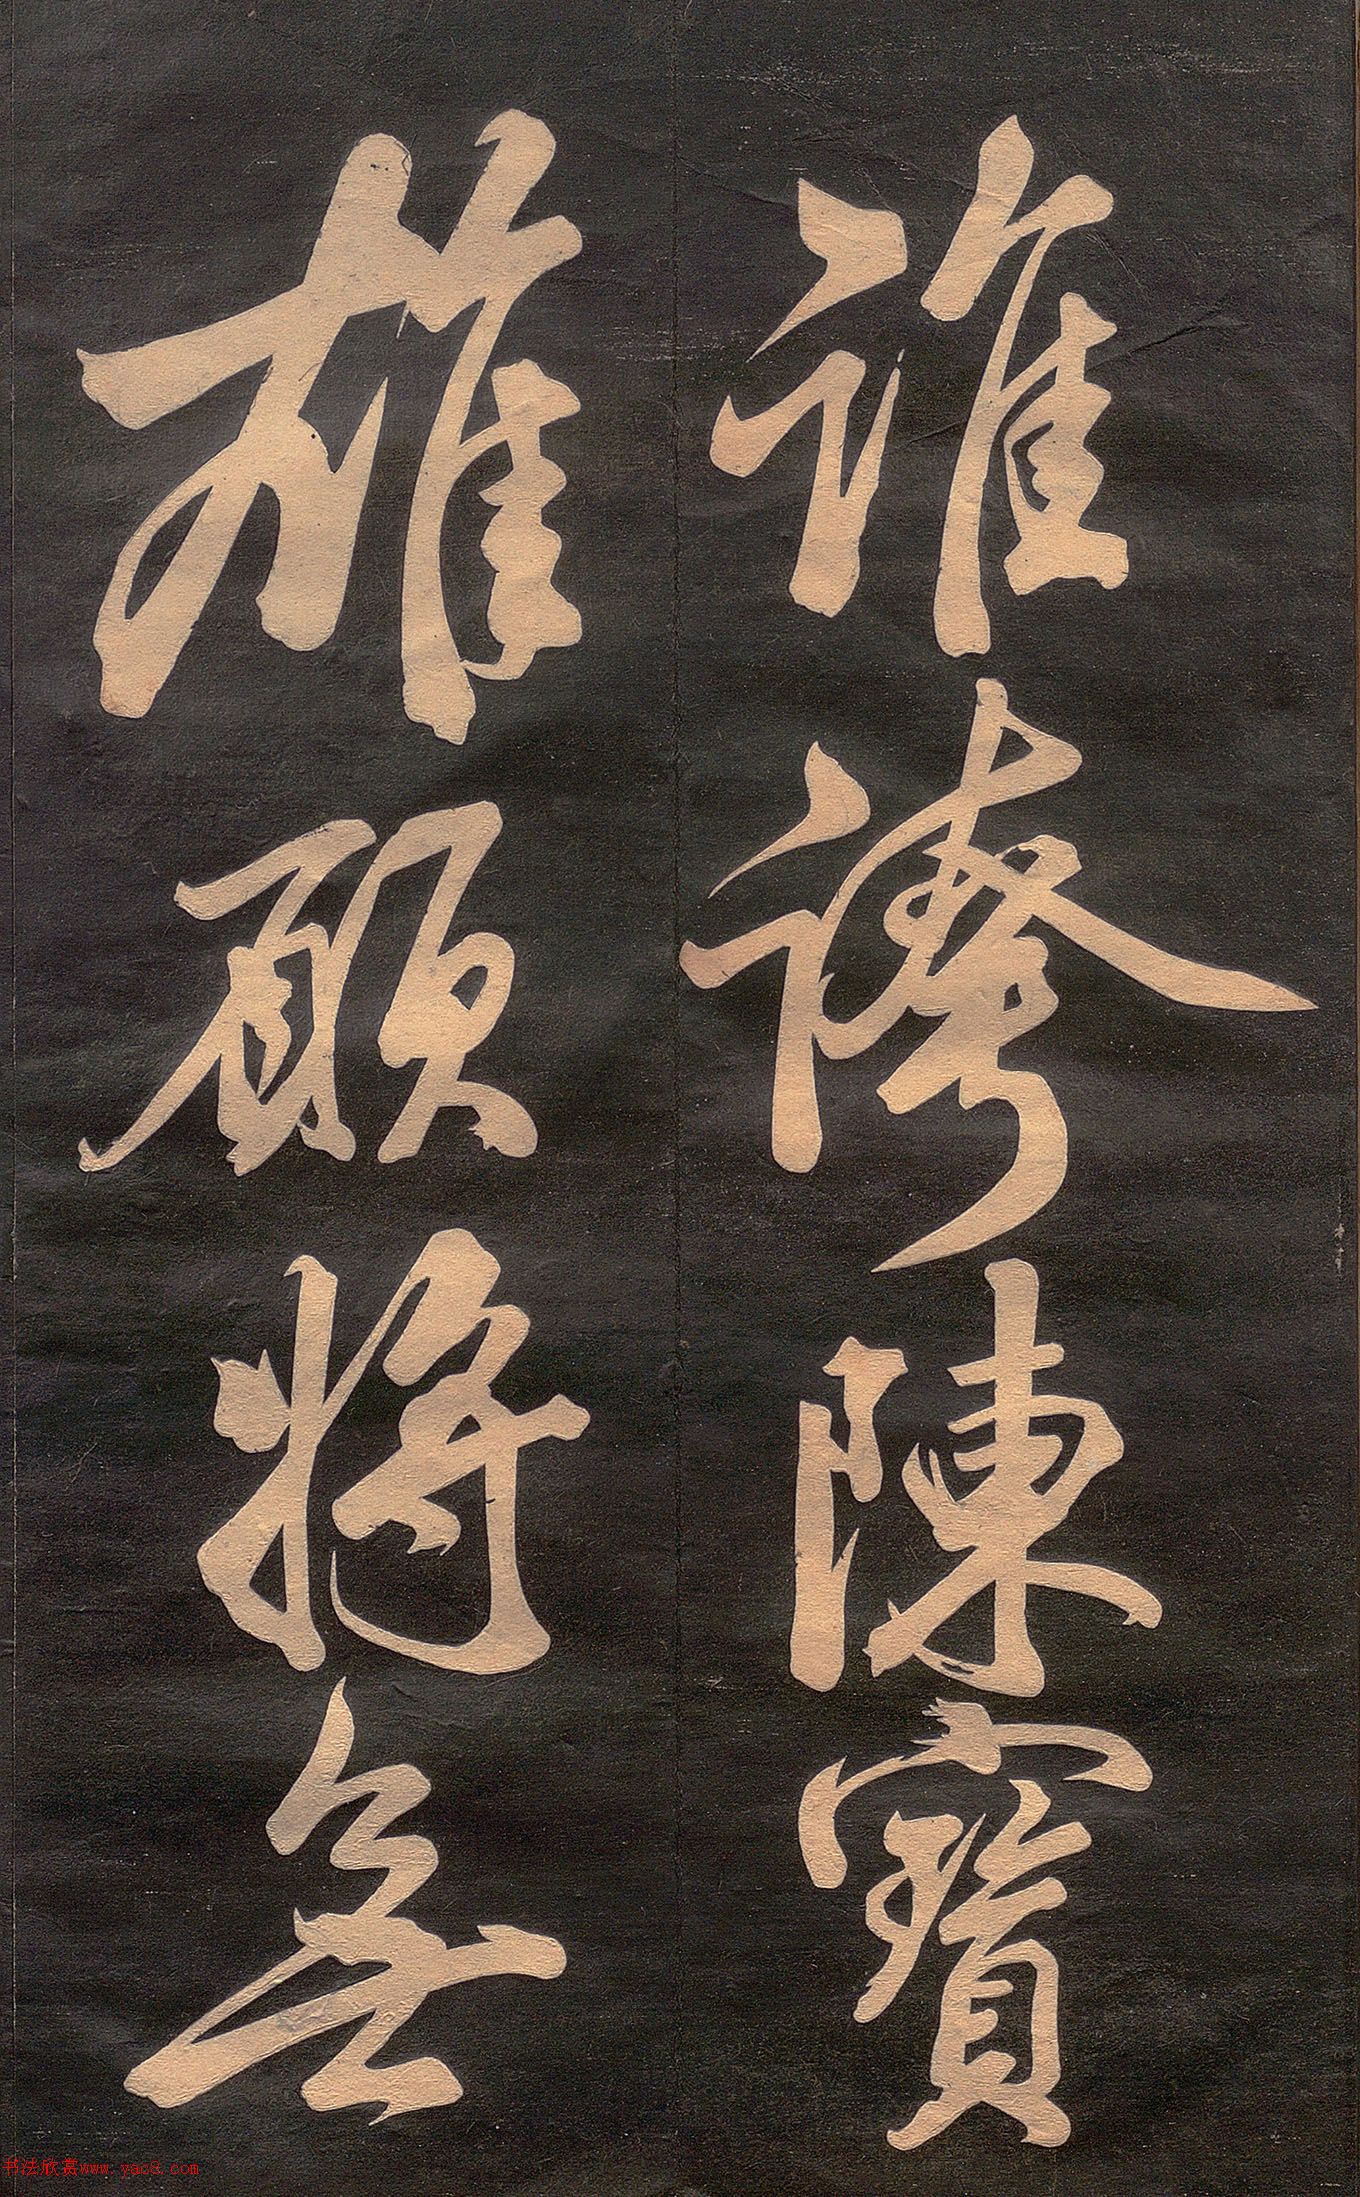 誰誇陳寶
雄顧將無
书法欣赏www.yac8.com